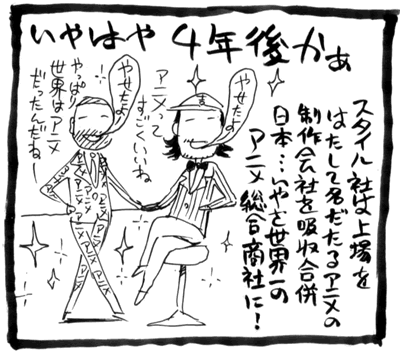 いやはや 4年後かぁ
スタイル社は上場を
はたして名だたるアニメの
制作会社を吸収合併
日本…いやさ世界一の
アニメ総合商社に!
やせたの
アニメって
すごくいいね
やせたよ
やっぱり
世界はアニメ
だったんだねー
アニメ
アニメ
アニメ
アニメ
アニメ
アニメ